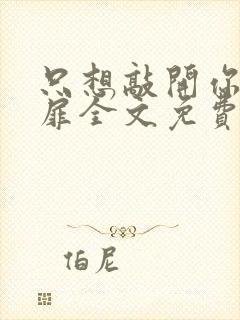 只想敲開你
扉全文免費
伯尼